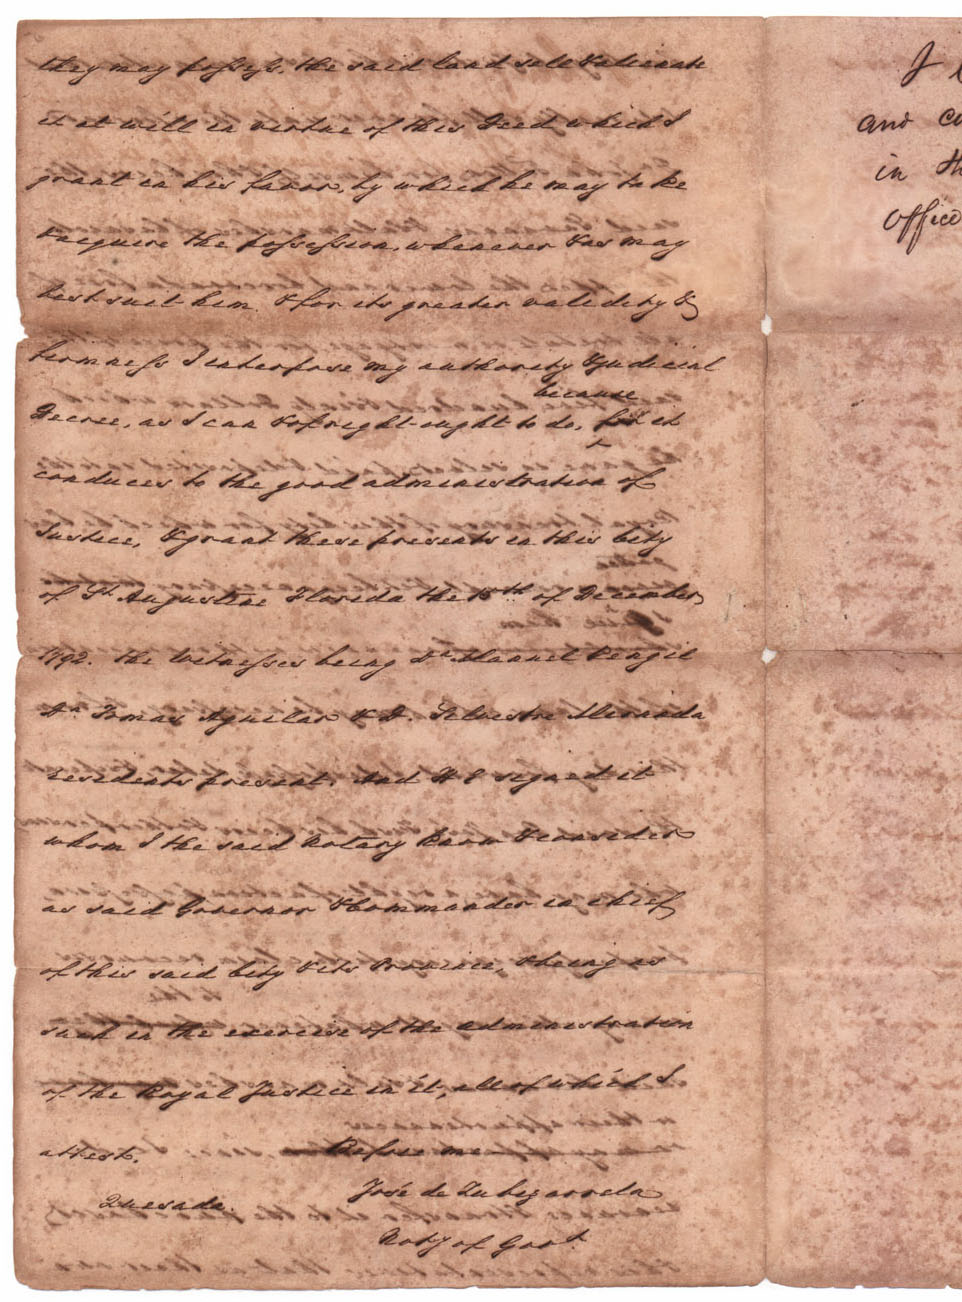 they may possess, the said land sell & alienate
it at will in virtue of this Deed which I
grant in his favor, by which he may take
& acquire the possession, whenever & as may
best suit him. & for its greater validity &
firmness I interpose my authority & Judicial
because
Decree, as I can & of right ought to do, for it
conduces to the good administration of
Justice, & grant these presents in this City
of St Augustine Florida the 15th of December
1792. the Witnesses being Dn Manuel Rengil
Dn Tomas Aguilar & D. Silvestre Meranda
residents present. And H E signed it
whom I the said Notary Know & consider
as said Governor & Commander in chief
of this said City & its Province, & being as
such in the exercise of the administration
of the Royal Justice in it, all of which I
attest. Before me
José de Zubizarreta
Quesada.
Noty of Govt
I
and
in
office